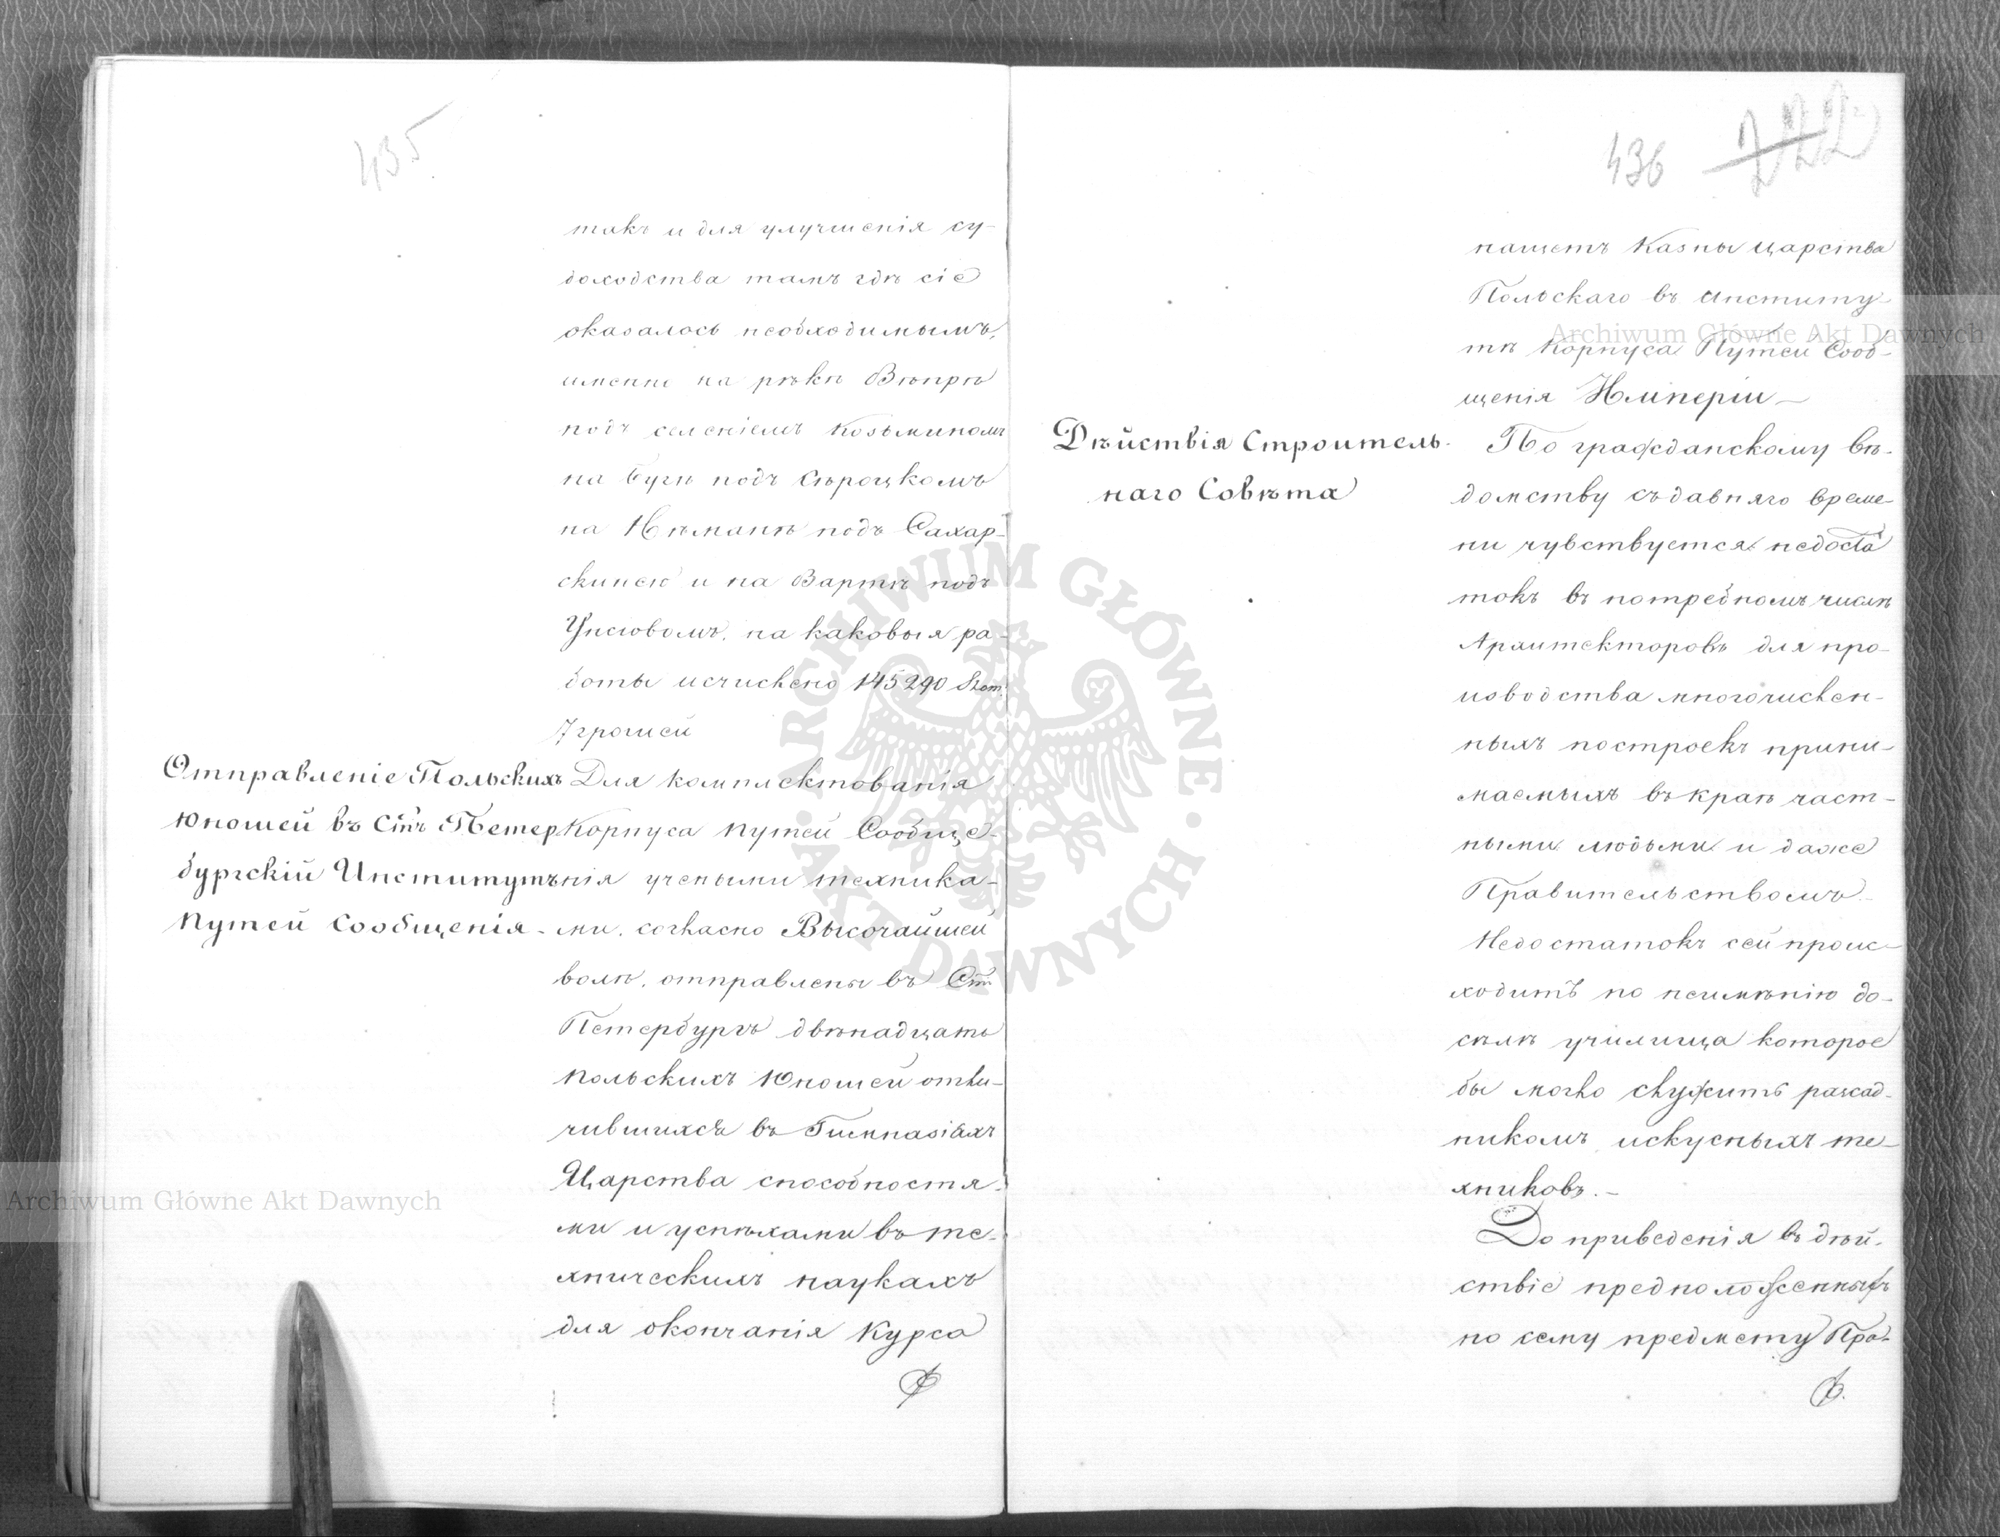 435
такъ и для улучшенія су-
доходства тамъ гдѣ сіе
оказалось необходимымъ,
именно на рѣкѣ Вѣпрѣ
подъ селеніемъ Козьминомъ
на Бугѣ подъ Сѣроцкомъ
на Нѣманѣ подъ Сахар-
скинею и на Вартѣ подъ
Унеіовомъ, на каковыя ра-
боты исчислено 145290 Злот.
7 грошей
Отправленіе Польскихъ
Юношей въ Стъ Петер
бургскій Институтъ
Путей Сообщенія -
Для комплектованія
Корпуса Путей Сообще-
нія учеными техника-
ми, согласно Высочайшей
волѣ, отправлены въ Ст.
Петербургъ двѣнадцать
Польскихъ Юношей отли-
чившихся въ Гимназіяхъ
Царства способностя-
ми и успѣхами въ те-
хническихъ наукахъ
для окончанія Курса
436 222
нащетъ Казны Царства
Польскаго въ Институ-
тѣ Корпуса Путей Сооб-
щенія Имперіи —
Дѣйствія Строитель-
наго Совѣта
По гражданскому вѣ-
домству съдавняго време-
ни чувствуется недоста
токъ въ потребномъ числѣ
Архитекторовъ для про-
изводства многочислен-
ныхъ построекъ прини-
маемыхъ въ краѣ част-
ными людьми и даже
Правительствомъ.-
Недостатокъ сей проис-
ходитъ по неимѣнію до-
сѣлѣ училища которое
бы могло служить разсад-
никомъ искусныхъ те-
хниковъ. -
До приведенія въ дѣй-
ствіе предположенныхъ
по сему предмету Пра-
Archiwum Główne Akt Dawnych
Archiwum Główne Akt Dawnych
ARCHIWUM GŁÓWNE AKT DAWNYCH